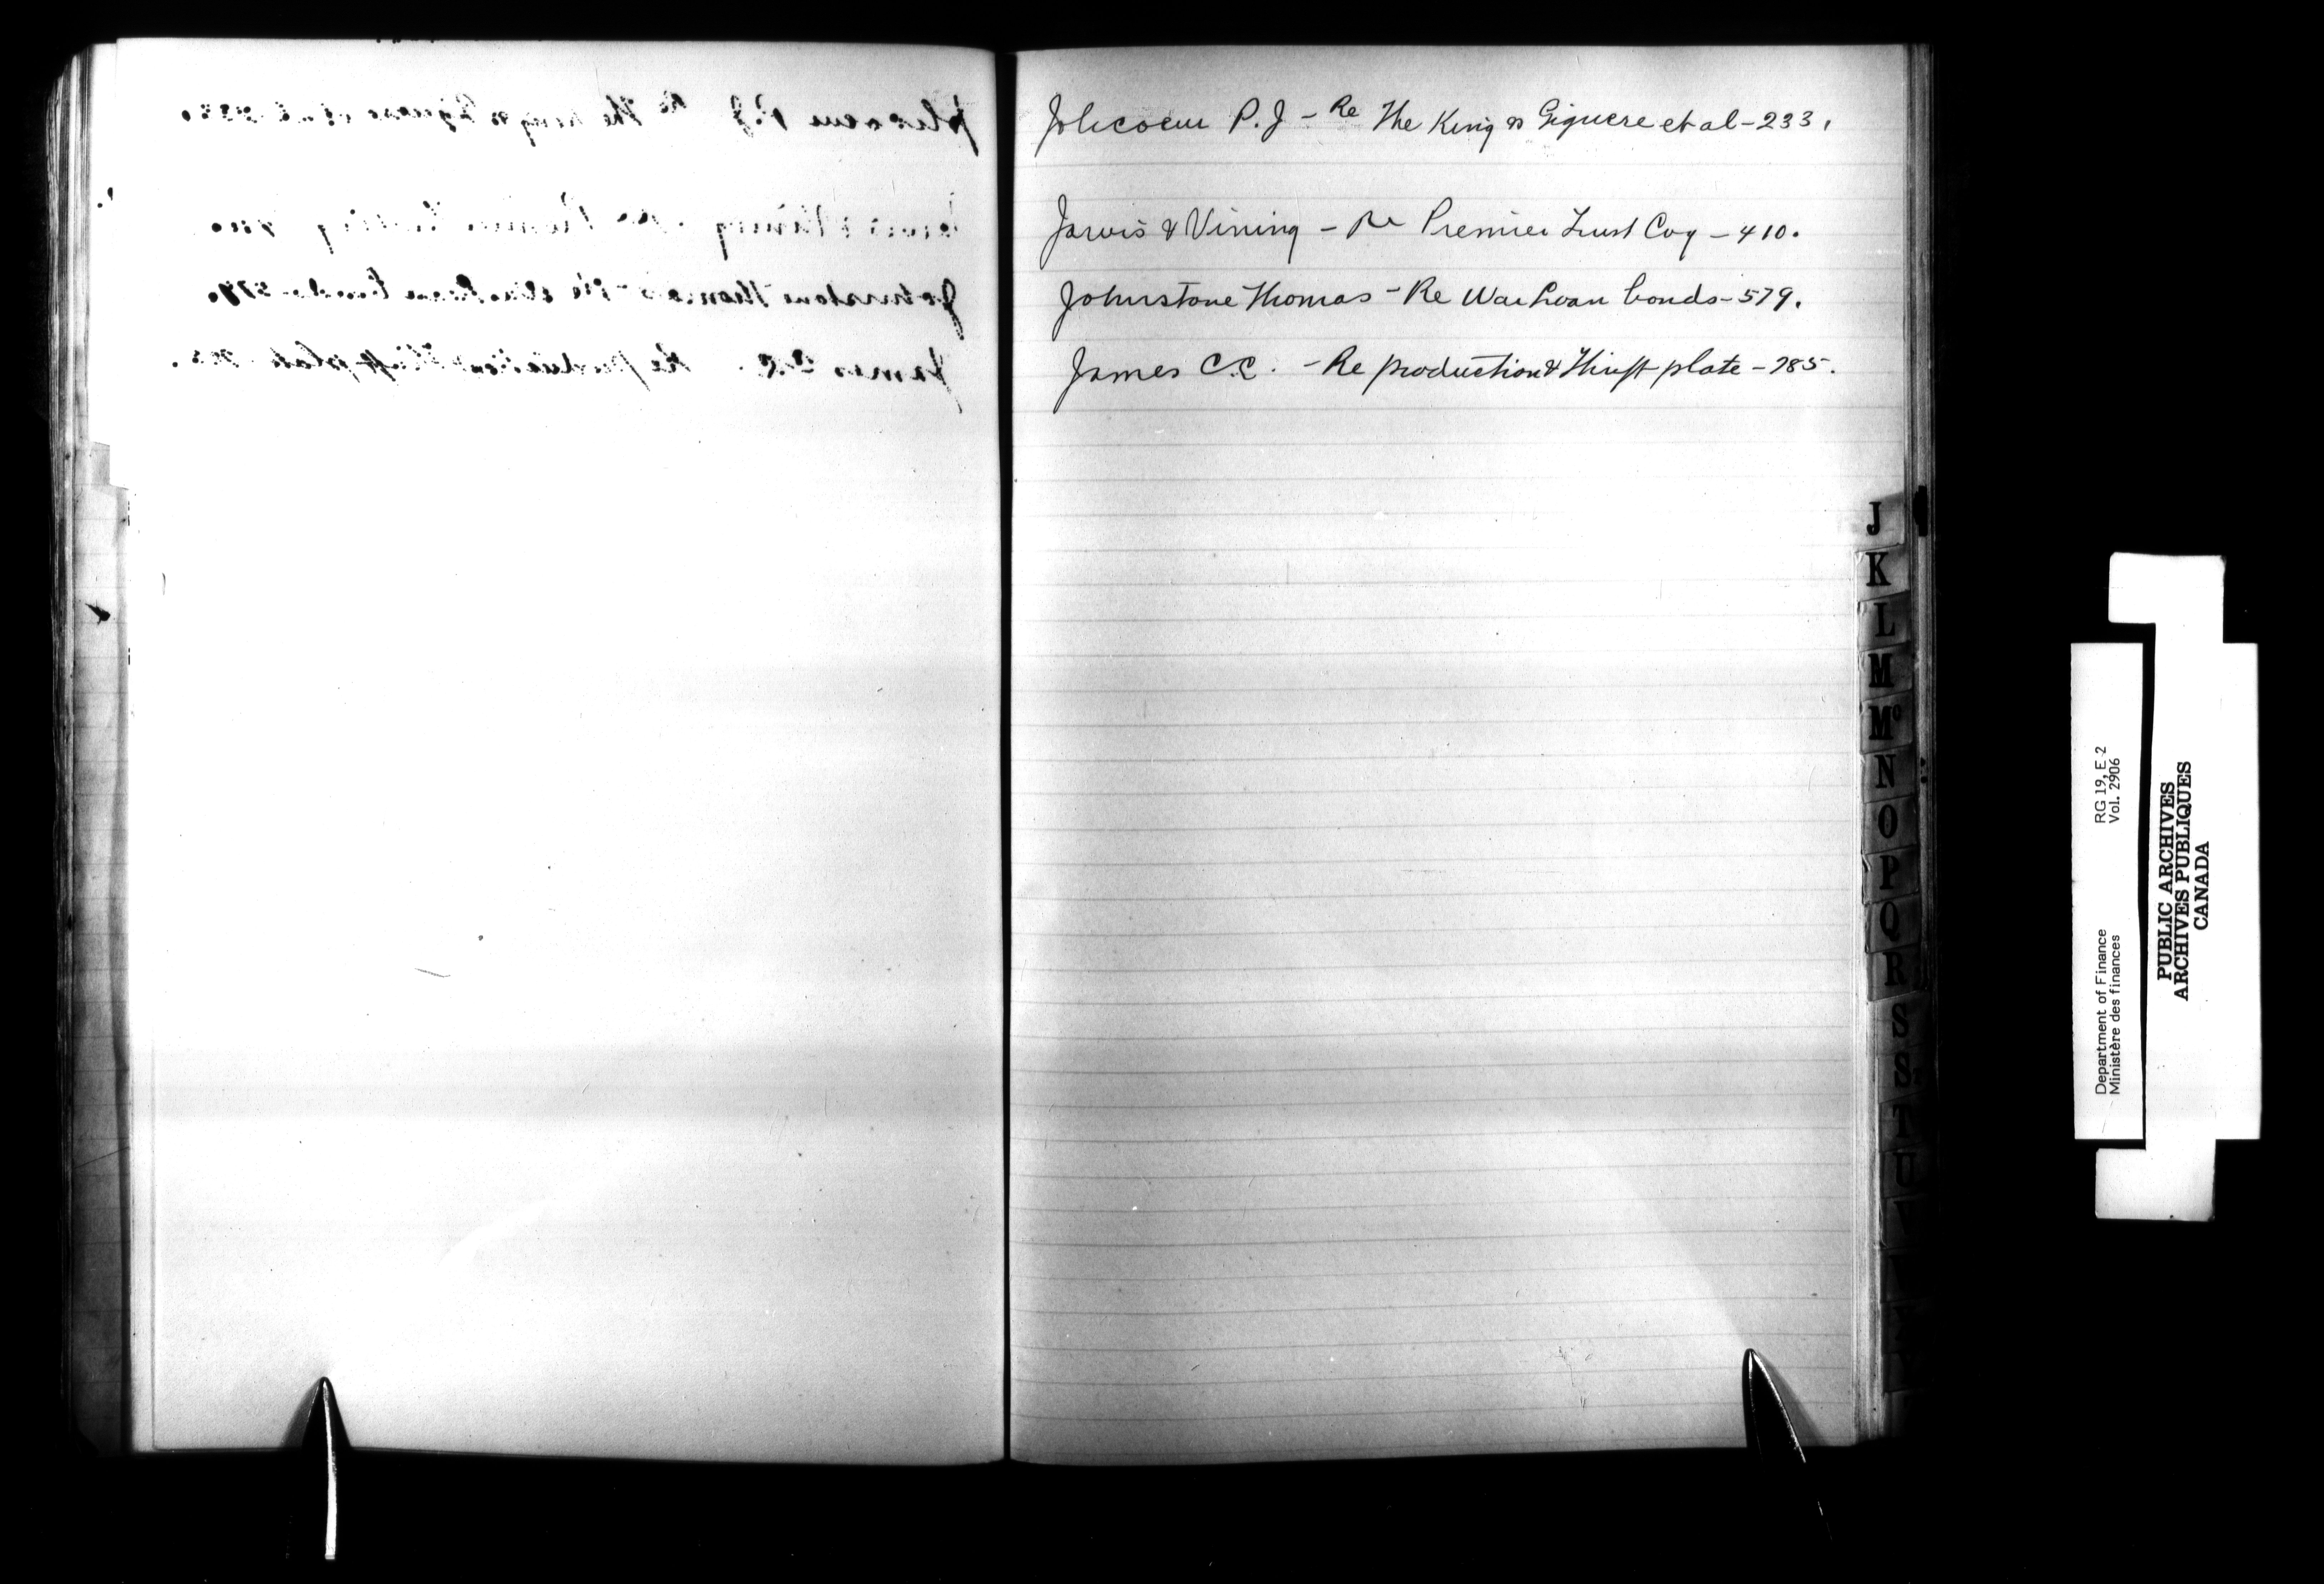 Jolicoeur P.J - Re The King vs Giguere et al - 233.
Jarvis & Vining - Re Premier Trust Coy - 410.
Johnstone Thomas - Re War Loan bonds - 579.
James C.C. - Re production & Thrift plate - 785.
J
K
L
M
Mc
N
O
P
Q
R
S
S
T
U
V
Department of Finance RG 19, E 2
Ministère des finances Vol. 2906
PUBLIC ARCHIVES
ARCHIVES PUBLIQUES
CANADA